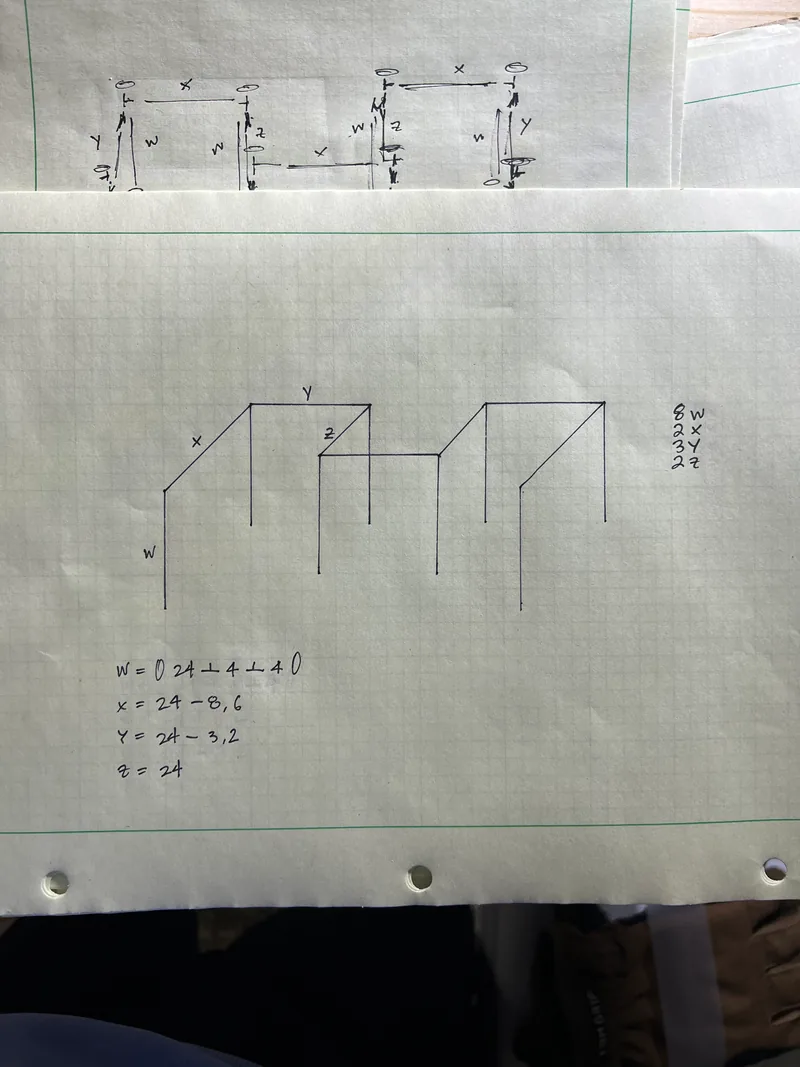 x
x
Y
W
W
Z
x
W
Z
W
Y
Y
x
z
W
8 W
2 X
3 Y
2 Z
W = 0 24 ⊥ 4 ⊥ 4 0
x = 24 - 8,6
Y = 24 - 3,2
z = 24